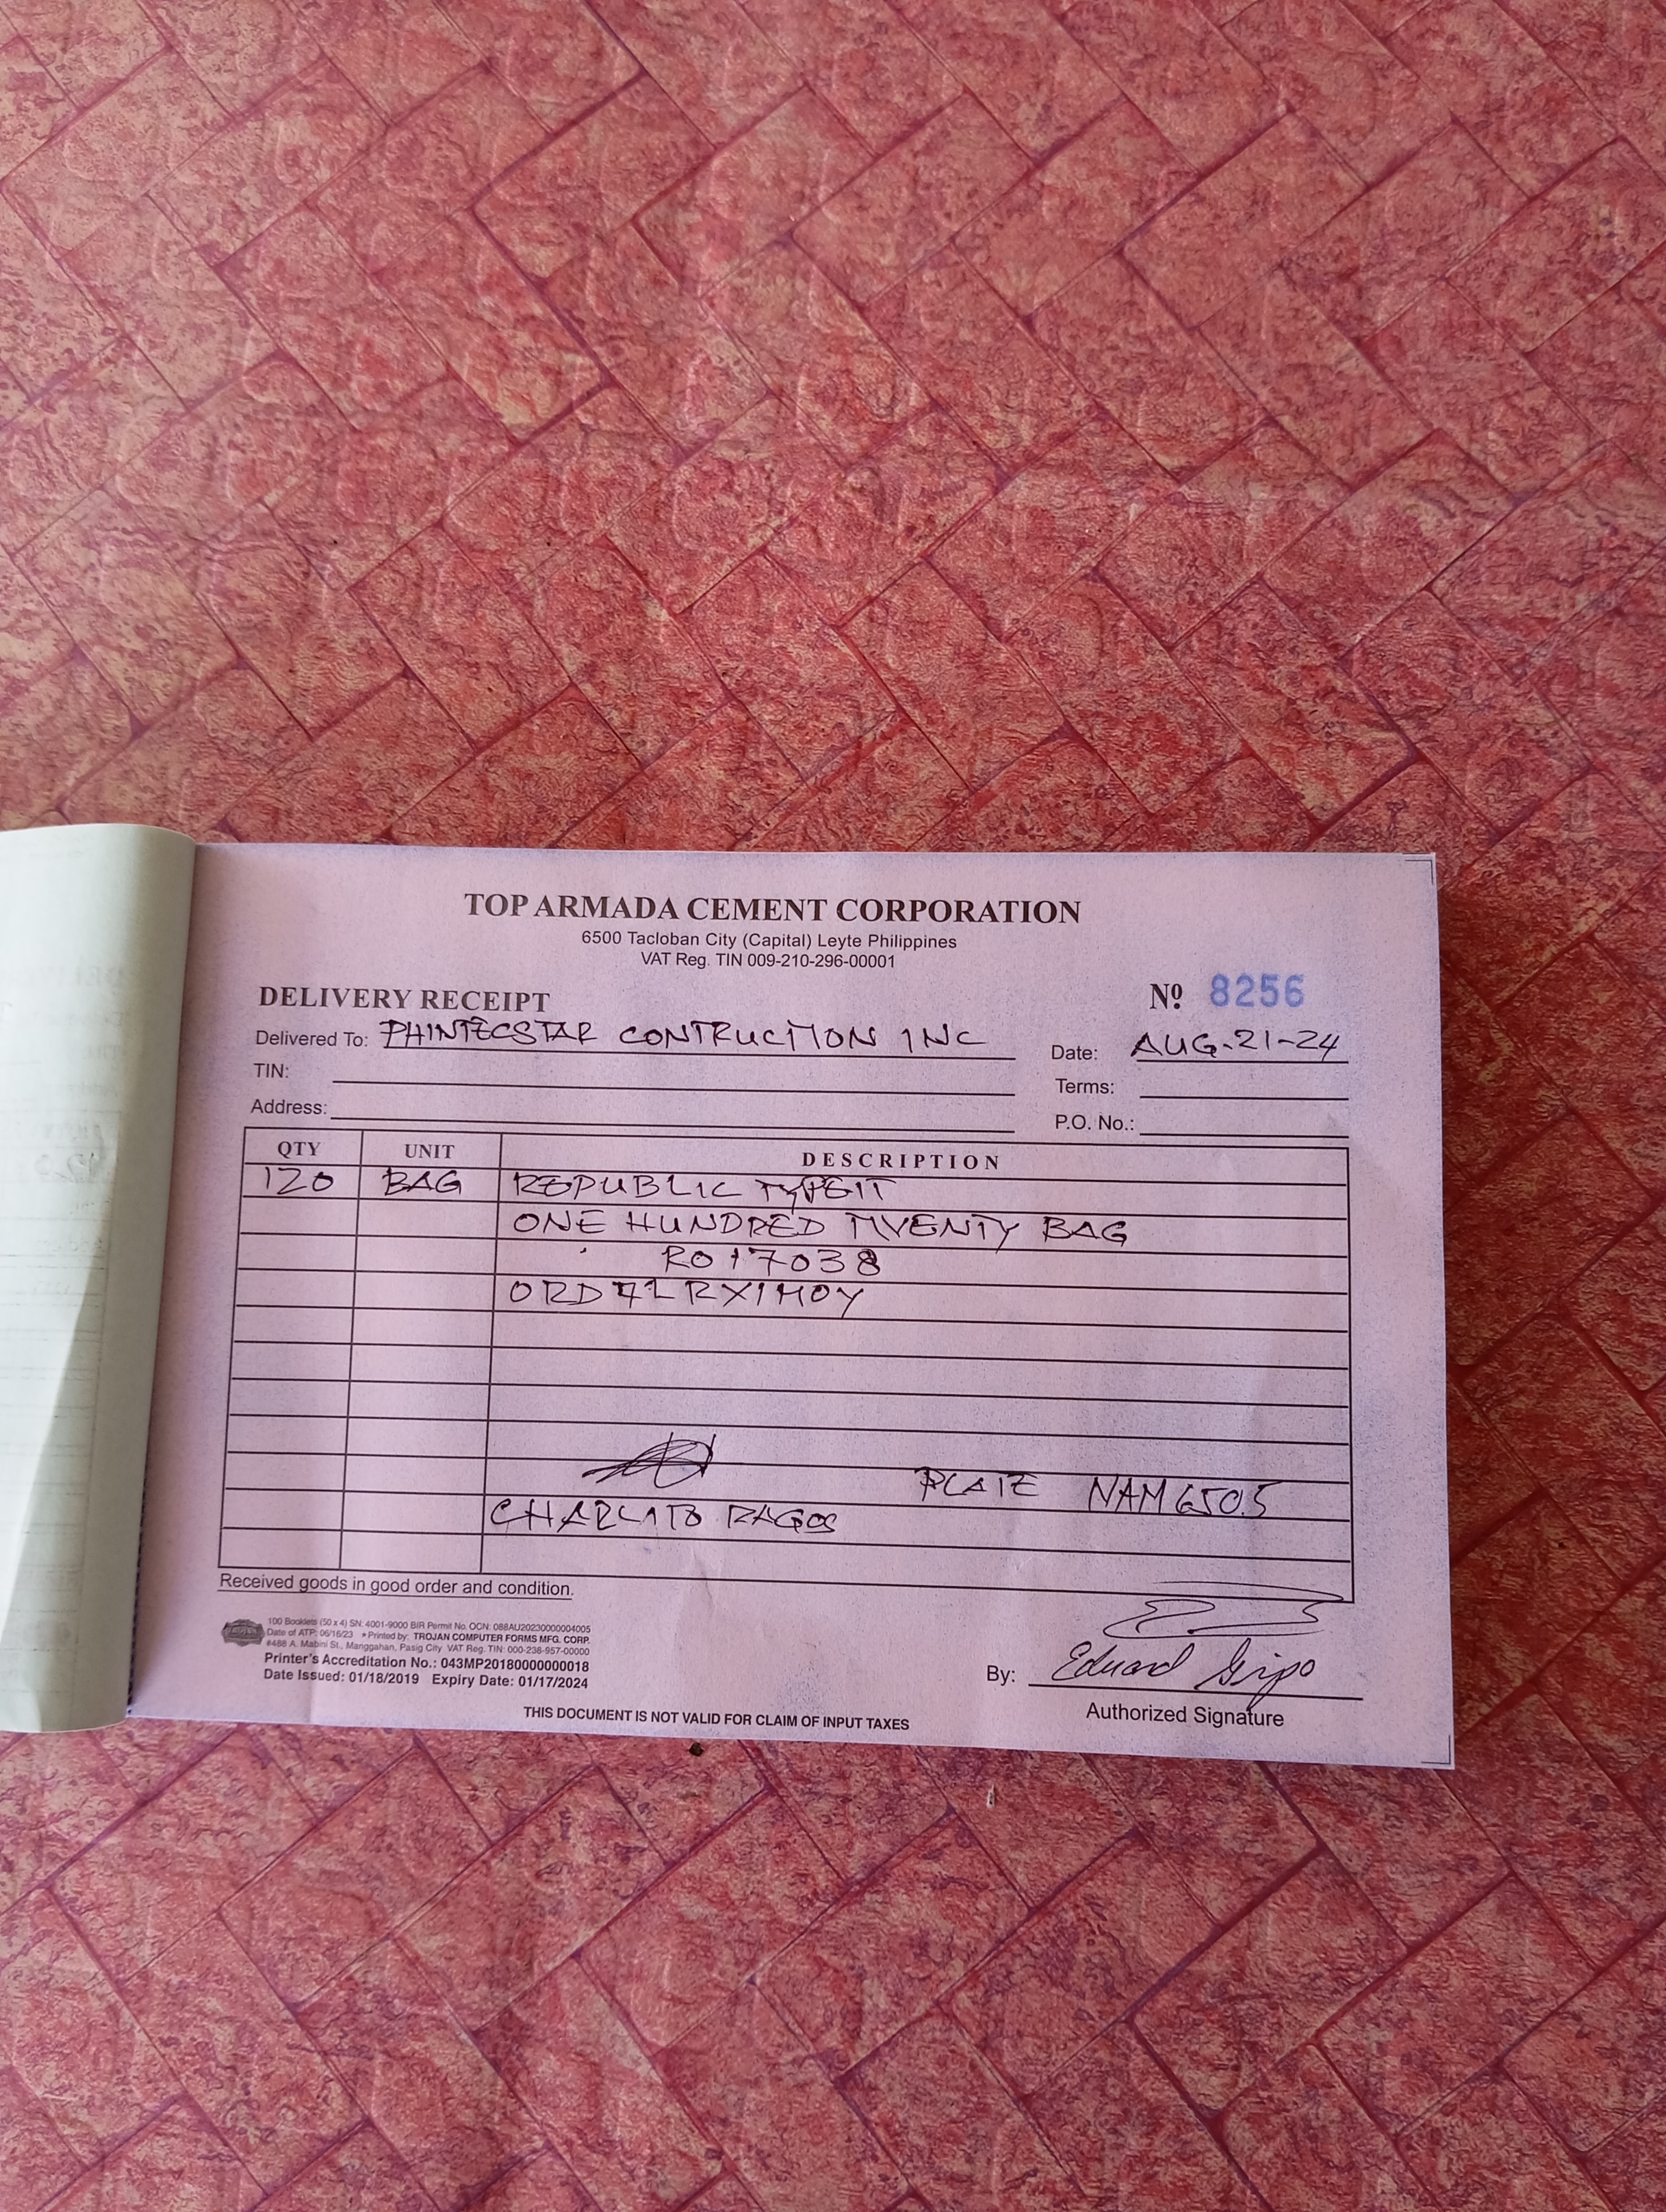 TOP ARMADA CEMENT CORPORATION
6500 Tacloban City (Capital) Leyte Philippines
VAT Reg. TIN 009-210-296-00001
DELIVERY RECEIPT
Nº 8256
Delivered To: PHINTECSTAR CONTRUCTION INC
Date: AUG-21-24
TIN:
Terms:
Address:
P.O. No.:
QTY UNIT DESCRIPTION
120 BAG REPUBLIC
ONE HUNDRED TWENTY BAG
RO 17038
PLATE NAM6505
CHARLITO RAGOS
Received goods in good order and condition.
100 Booklets (50 x 4) SN: 4001-9000 BIR Permit No. OCN: 088AU20230000004005
Date of ATP: 06/16/23 • Printed by: TROJAN COMPUTER FORMS MFG. CORP.
#488 A. Mabini St., Manggahan, Pasig City VAT Reg. TIN: 000-238-957-00000
Printer's Accreditation No.: 043MP20180000000018
Date Issued: 01/18/2019 Expiry Date: 01/17/2024
By: Eduard Gipo
Authorized Signature
THIS DOCUMENT IS NOT VALID FOR CLAIM OF INPUT TAXES